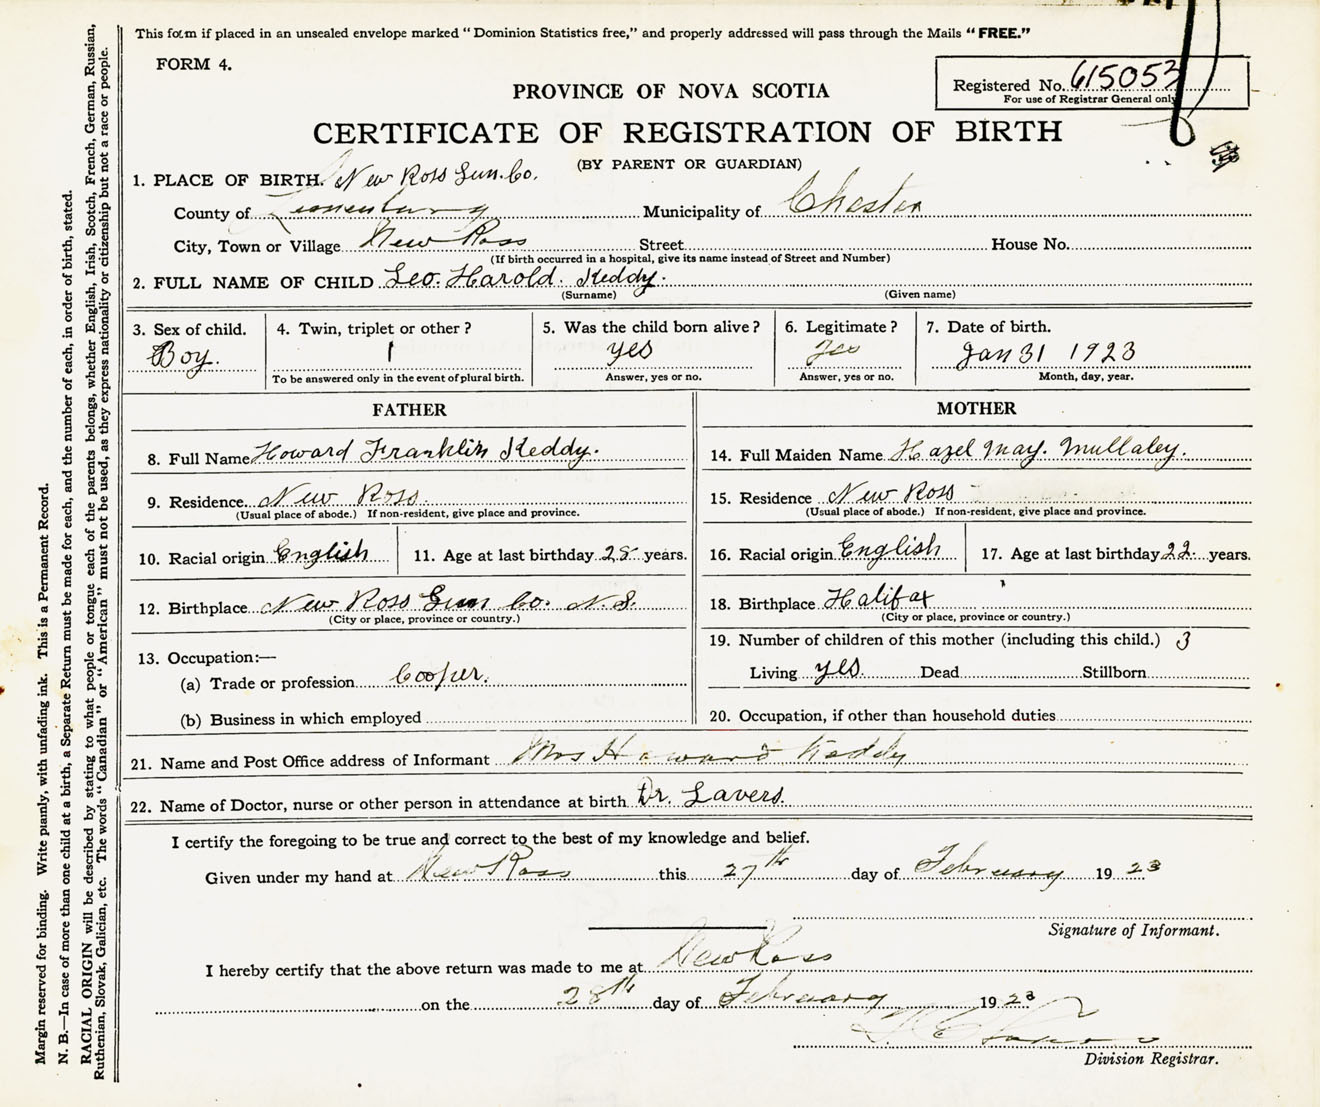 This form if placed in an unsealed envelope marked "Dominion Statistics free," and properly addressed will pass through the Mails "FREE."
FORM 4.
Registered No. 615053
For use of Registrar General only
PROVINCE OF NOVA SCOTIA
CERTIFICATE OF REGISTRATION OF BIRTH
(BY PARENT OR GUARDIAN)
1. PLACE OF BIRTH. New Ross Lun. Co.
County of Lunenburg Municipality of Chester
City, Town or Village New Ross Street House No.
(If birth occurred in a hospital, give its name instead of Street and Number)
2. FULL NAME OF CHILD Leo. Harold. Keddy.
(Surname) (Given name)
3. Sex of child. 4. Twin, triplet or other? 5. Was the child born alive? 6. Legitimate? 7. Date of birth.
Boy. 1 yes yes Jan 31 1923
To be answered only in the event of plural birth. Answer, yes or no. Answer, yes or no. Month, day, year.
FATHER
8. Full Name Howard Franklin Keddy.
9. Residence New Ross.
(Usual place of abode.) If non-resident, give place and province.
10. Racial origin English 11. Age at last birthday 28 years.
12. Birthplace New Ross Lun Co. N.S.
(City or place, province or country.)
13. Occupation:—
(a) Trade or profession Cooper.
(b) Business in which employed
MOTHER
14. Full Maiden Name Hazel May. Mullaley.
15. Residence New Ross
(Usual place of abode.) If non-resident, give place and province.
16. Racial origin English 17. Age at last birthday 22 years.
18. Birthplace Halifax
(City or place, province or country.)
19. Number of children of this mother (including this child.) 3
Living yes. Dead Stillborn
20. Occupation, if other than household duties
21. Name and Post Office address of Informant Mrs Howard Keddy
22. Name of Doctor, nurse or other person in attendance at birth Dr. Lavers.
I certify the foregoing to be true and correct to the best of my knowledge and belief.
Given under my hand at New Ross this 27th day of February 1923
Signature of Informant.
I hereby certify that the above return was made to me at New Ross
on the 28th day of February 1923
Division Registrar.
Margin reserved for binding. Write plainly, with unfading ink. This is a Permanent Record.
N. B.—In case of more than one child at a birth, a Separate Return must be made for each, and the number of each, in order of birth, stated.
RACIAL ORIGIN will be described by stating to what people or tongue each of the parents belongs, whether English, Irish, Scotch, French, German, Russian,
Ruthenian, Slovak, Galician, etc. The words "Canadian" or "American" must not be used, as they express nationality or citizenship but not a race or people.